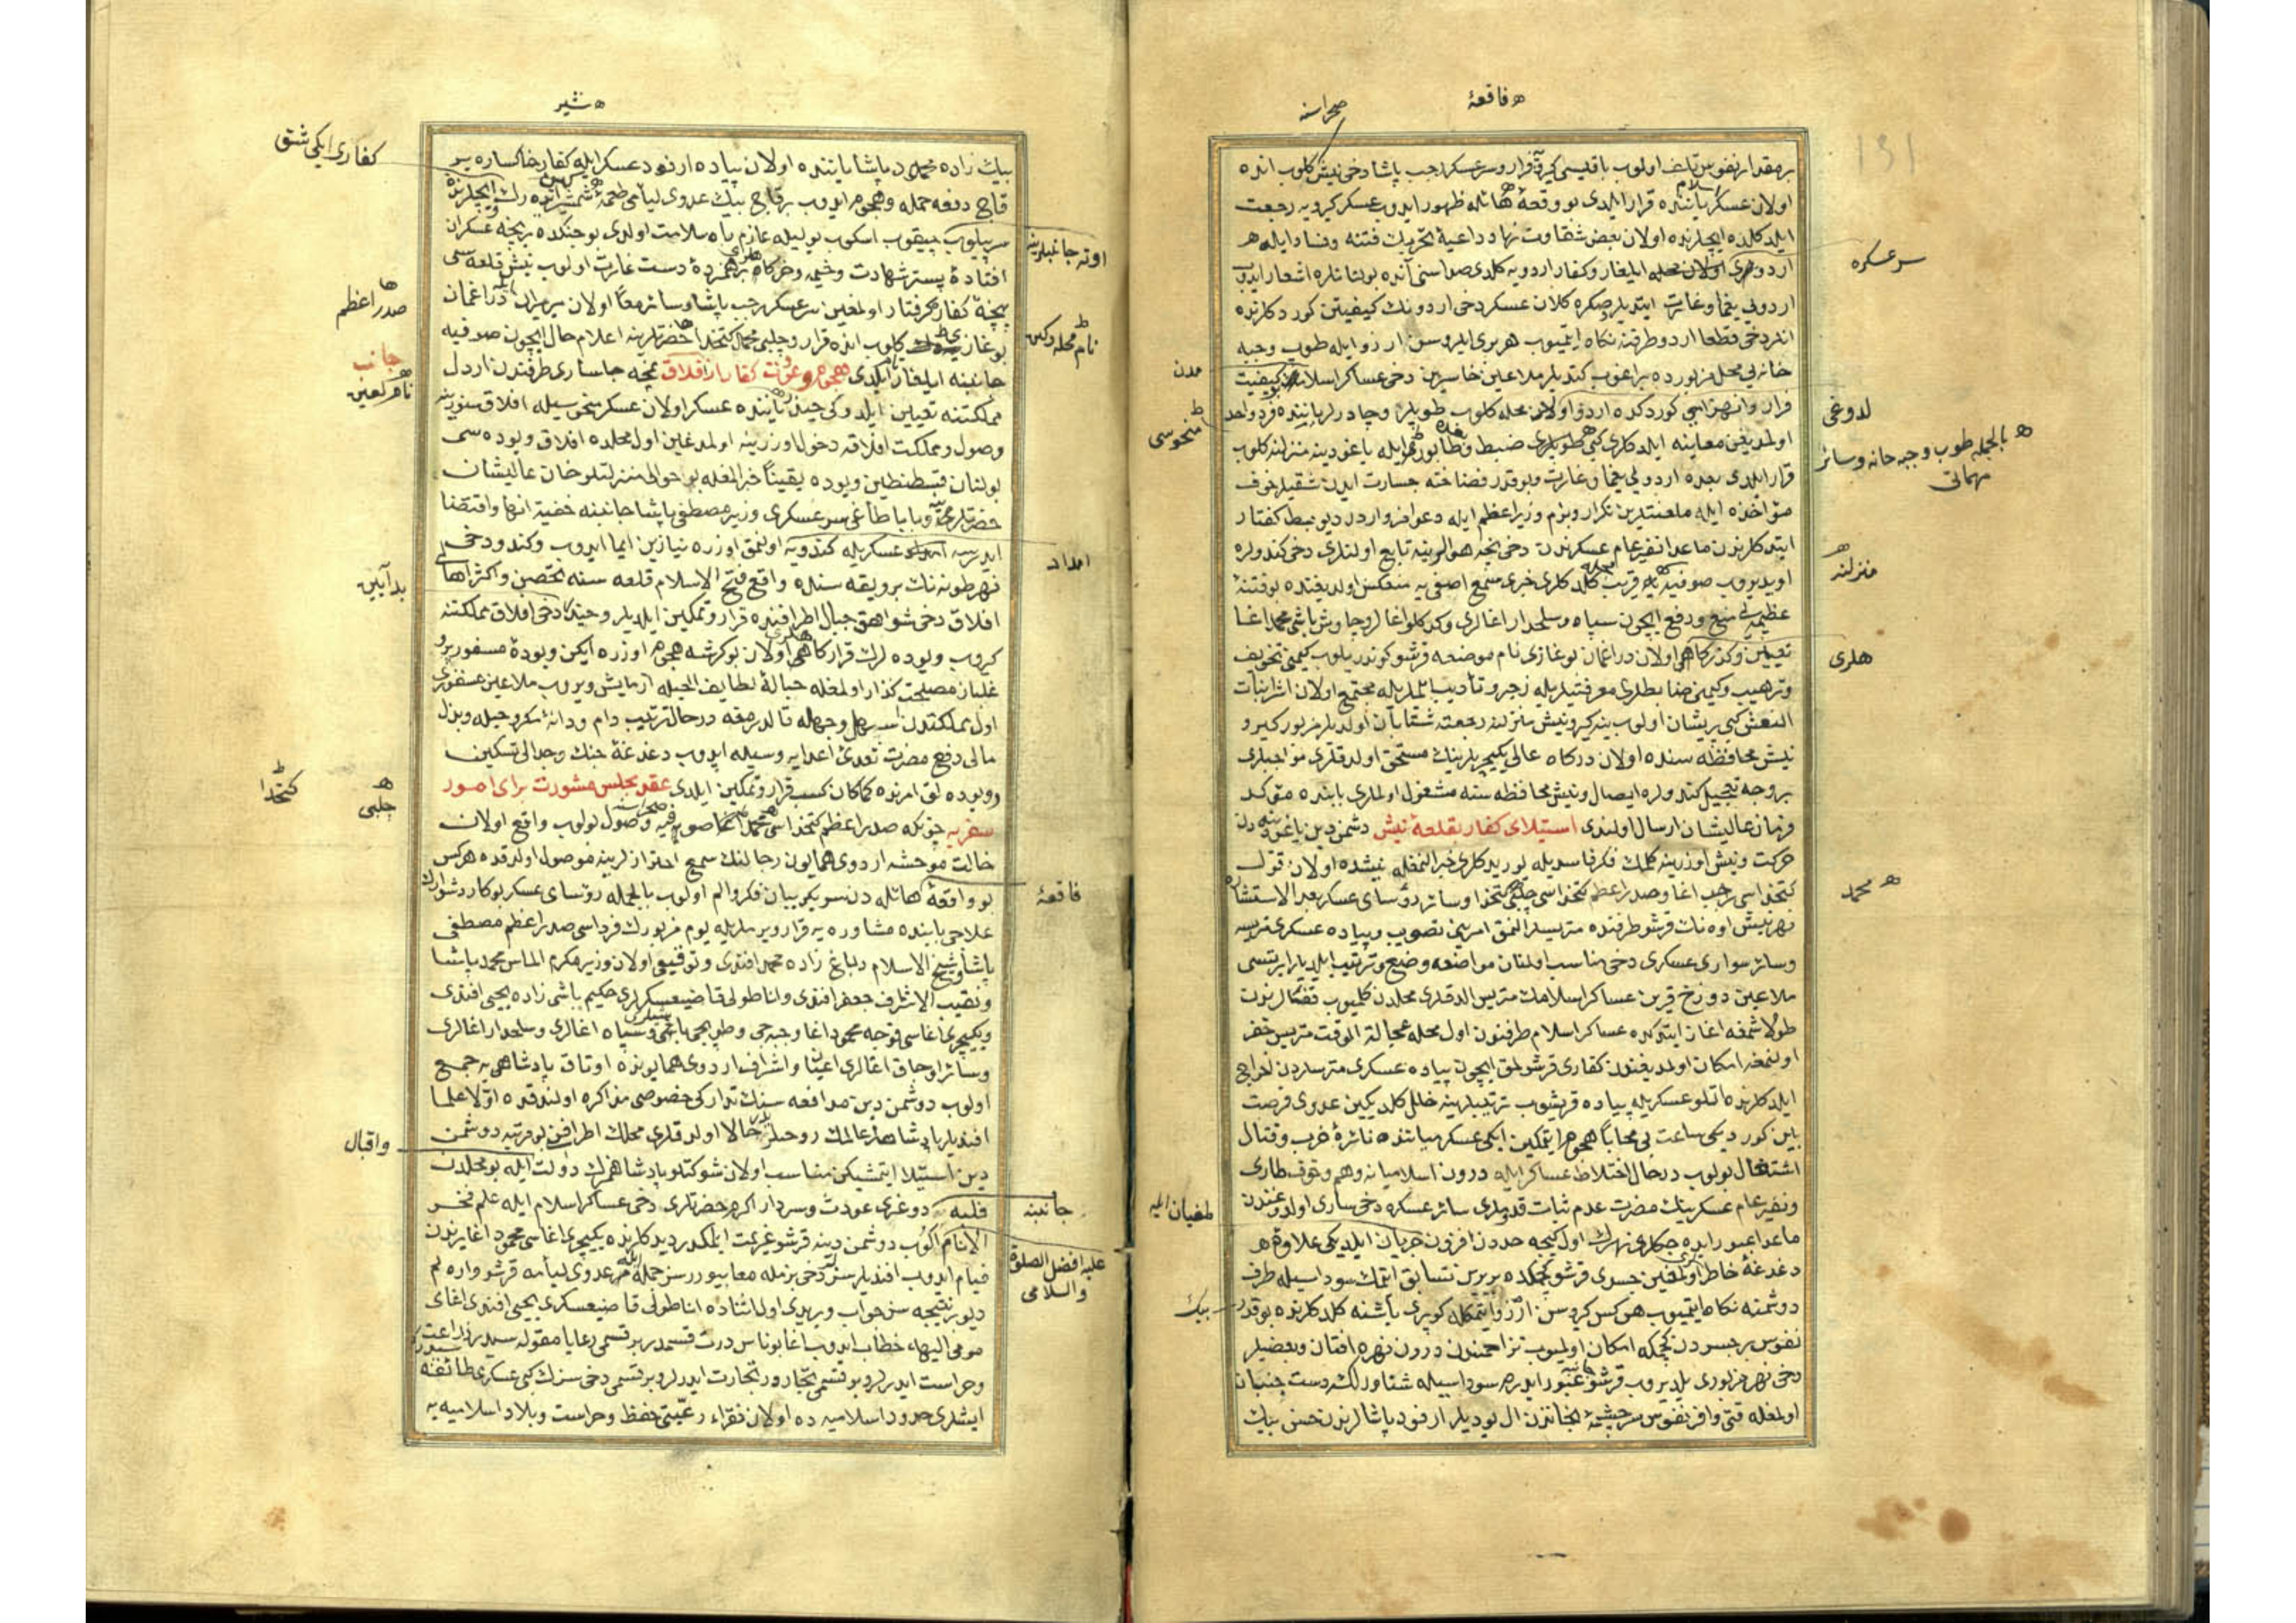 فاقعۀ
صحراسنه
بر مقدار نفوس تلف اولوب باقیسی کیرو فرار و سرعسکر رجب پاشا دخی نیش کلوب انده
اولان عسکر یاننده قرار ایلدی بو وقعۀ هائله ظهور ایدوب عسکر کیرویه رجعت
ایلدکلرنده ایچلرنده اولان بعض شقاوت نهاد داعیۀ تحریك فتنه و فساد ایله
ایلغار و کفار اردویه کلدی صداسنی
اردویی یغما و غارت ایتدیلر صکره کلان عسکر دخی اردونك کیفیتن کوردکلرنده
انلر دخی قطعا اردو طرفنه نکاه ایتمیوب هر بری ایلروسن ارزو ایله طوپ و جبه
خانه یی محل مزبورده براغوب کتدیلر ملاعین خاسرین دخی عساکر اسلامك کیفیت
فرار و انهزامی کوردکده اردو اولان محله کلوب طوپلر و چادرلر یاننده فرد واحد
اولمدیغن معاینه ایلدکلری کبی طوپلری ضبط و طابور ایله یاغودینه منزلنه کلوب
قرار ایلدی بعده اردویی یغما و غارت و بو قدر فضاحته جسارت ایدن شقیلر خوف
مؤاخذه ایله
ایتدکلرندن ماعدا نفیر عام عسکرندن دخی نیجه هوالرینه تابع اولنلری دخی کندولره
اویدیروب صوفیه یه قریب کلدکلری خبری مسمع اصفی یه منعکس اولدیغنده بو فتنۀ
عظیمه یی منع و دفع ایچون سپاه و سلحدار اغالری و کدکلو اغالر و چاوش باشی محمد اغا
تعیین و کذرکاهی اولان دراغمان بوغازی نام موضعه قرشو کوندریلوب کیمنی تخویف
و ترهیب و کیمنی ضابطلری معرفتیله زجر و تأدیب ایلملریله مجتمع اولان اشرار بنات
النعش کبی پریشان اولوب ینه کیرو نیش منزلنه رجعته شتابان اولدیلر مزبور کیرو
نیش محافظه سنده اولان درکاه عالی یکیچریلرینك مستحق اولدقلری مواجبلری
بر وجه تعجیل کندولره ایصال و نیش محافظه سنه مشغول اولملری بابنده مؤکد
فرمان عالیشان ارسال اولندی استیلای کفار بقلعۀ نیش دشمن دین یاغودینه دن
حرکت و نیش اوزرینه کلمك فکر فاسدیله یوریدکلری خبر النمغله نیشده اولان قول
کتخداسی رجب اغا و صدراعظم کتخداسی چلبی کتخدا و سائر رؤسای عسکر بعد الاستشاره
نهر نیش اوه نك قرشو طرفنده متریسلر النمق امرینی تصویب و پیاده عسکری متریسه
و سائر سواری عسکری دخی مناسب اولنان مواضعه وضع و ترتیب ایلدیلر ایرتسی
ملاعین دوزخ قرین عساکر اسلامك متریس الدقلری محلدن کلمیوب
طولاشمغه اغاز ایتدکده عساکر اسلام طرفندن اول محله عجالة الوقت متریس حفر
اولنمغه امکان اولمدیغندن کفاری قرشولمق ایچون پیاده عسکری متریسلردن اخراج
ایلدکلرنده اتلو عسکریله پیاده قریشوب ترتیبلرینه خلل کلدیکین عدوی فرصت
بین کوردیکی ساعت بی محابا هجوم ایتمکین ایکی عسکر میاننده نائرۀ حرب و قتال
اشتعال بولوب درحال اختلاط عساکر ایله درون اسلامیانه وهم و خوف طاری
و نفیر عام عسکرینك مضرت عدم ثبات قدملری سائر عسکره دخی ساری اولدوغندن
ماعدا عبور ایده جکلری نهرك اول کیجه حددن افزون جریان ایلدیکی علاوۀ
دغدغۀ خاطر اولمغین جسری قرشو کچمکده بربرینه تسابق ایتمك سوداسیله طرف
دوشمنه نکاه ایتمیوب هرکس کیروسن ارزو ایتمکله کوپری باشنه کلدکلرنده بو قدر
نفوس بر جسردن کچمکه امکان اولمیوب تزاحمندن درون نهره افتان و بعضیلر
دخی نهر مزبوری یلدیروب قرشو عبور ایدرم سوداسیله شناورلك دست جنبان
اولمغله قتی وافر نفوس سرچشمۀ نجاتدن ال یودیلر ارنود پاشالرندن حسن بیك
سرعسکره
مدن
لدوغی
منحوسی
بالجمله طوپ و جبه خانه و سائر
مهماتی
منزلنه
هلری
محمد
طغیان ایله
بیك
شیر
بیك زاده محمود پاشا یاننده اولان پیاده ارنود عسکر ایله کفار خاکساره بر
قاچ دفعه حمله و هجوم ایدوب بر قاچ بیك عدوی لئامی طعمۀ شمشیر
سپیلوب چیقوب اسکوب یولیله عازم راه سلامت اولدی بو جنکده نیجه عسکران
افتادۀ بستر شهادت و خیمه و خرکاه برهمزدۀ دست غارت اولوب نیش قلعه سی
پنجۀ کفاره گرفتار اولمغین سرعسکر رجب پاشا و سائر معا اولان میرمیران دراغمان
بوغازی کلوب انده قرار و چلبی محمد کتخدا حضرتلرینه اعلام حال ایچون صوفیه
جانبنه ایلغار ایلدی هجوم و عودت کفار از افلاق نمچه جاساری طرفندن اردل
مملکتنه تعیین ایلدوکی جنرال یاننده عسکر اولان عسکر منحوسیله افلاق سنورینه
وصول و مملکت افلاقه دخول اوزرینه اولمدغین اول محلده افلاق ویوده سی
بولنان قسطنطین ویوده یقیناً خبر المغله بو حوالی منزلتلو خان عالیشان
حضرتلرینه و بابا طاغی سرعسکری وزیر مصطفی پاشا جانبنه خفیة انها و اقتضا
ایدرسه عسکریله کندویه اولمق اوزره نیازین ایما ایدوب و کندو دخی
نهر طونه نك بر ویقه سنده واقع فتح الاسلام قلعه سنه تحصن و اکثر اهالی
افلاق دخی شواهق جبال اطرافنده قرار و تمکین ایلدیلر و جنرال دخی افلاق مملکتنه
کروب ویوده لرك قرارکاهی اولان بوکرشه هجوم اوزره ایکن ویودۀ مسفور بر و
اول مملکتدن اسهل وجهله قالدرمغه درحال ترتیب دام و دانۀ مکر و حیله و بذل
مالی دفع مضرت تعدی اعدایه وسیله ایدوب دغدغۀ جنك و جدالی تسکین
و ویوده لق امرنده کماکان کسب قرار و تمکین ایلدی عقد مجلس مشورت برای امور
سفریه چونکه صدراعظم کتخداسی محمد اغا صوفیه وصول بولوب واقع اولان
حالت موحشه اردوی همایون رجالنك سمع احترازلرینه موصول اولدقده هرکس
بو واقعۀ هائله دن سربکریبان فکر و الم اولوب بالجمله رؤسای عسکر بو کار دشوارك
علاجی بابنده مشاوره یه قرار ویرملریله یوم مزبورك فرداسی صدراعظم مصطفی
پاشا و شیخ الاسلام دباغ زاده محمد افندی و توقیعی اولان وزیر مکرم الماس محمد پاشا
و نقیب الاشراف جعفر افندی و اناطولی قاضیعسکری حکیم باشی زاده یحیی افندی
و یکیچری اغاسی قوجه محمود اغا و جبه جی و طوپجی باشی و سپاه اغالری و سلحدار اغالری
و سائر اوجاق اغالری اعیان و اشراف اردوی همایونده اوتاق پادشاهی یه جمع
اولوب دوشمن دین مدافعه سنك تدارکی خصوصی مذاکره اولندقده اولا علما
افندیلر پادشاهلر عالمك روحیدر حالا اولدقلری محلك اطرافن بو مرتبه دوشمن
دین استیلا ایتمشیکن مناسب اولان شوکتلو پادشاهمزك دولت ایله بو محلدن
فلبه دوغری عودت و سردار اکرم حضرتلری دخی عساکر اسلام ایله علم فخر
الانام آلوب دوشمن دینه قرشو عزیمت ایلمکدر دیدکلرنده یکیچری اغاسی محمود اغا یرندن
قیام ایدوب افندیلر سز دخی بزمله معا بیورر سز جمله مز عدوی لئامه قرشو واره لم
دیو بر نتیجه سز جواب ویردی اول اثناده اناطولی قاضیعسکری یحیی افندی اغای
مومی الیهه خطاب ایدوب اغا بو ناس درت قسمدر بر قسمی رعایا مقوله سیدر زراعت
و حراست ایدرلر و بر قسمی تجاردر تجارت ایدرلر و بر قسمی دخی سزك کبی عسکری طائفه سیدر
ایشلری حدود اسلامیه ده اولان فقراء رعیتی حفظ و حراست و بلاد اسلامیه یه
کفاری ایکی شق
اوته جانبلرینه
صدراعظم
نام محله دکین
جانب
نامه لعین
امداد
بدآیین
کتخدا
چلبی
فاقعۀ
واقبال
جانبنه
علیه افضل الصلوة
والسلامی